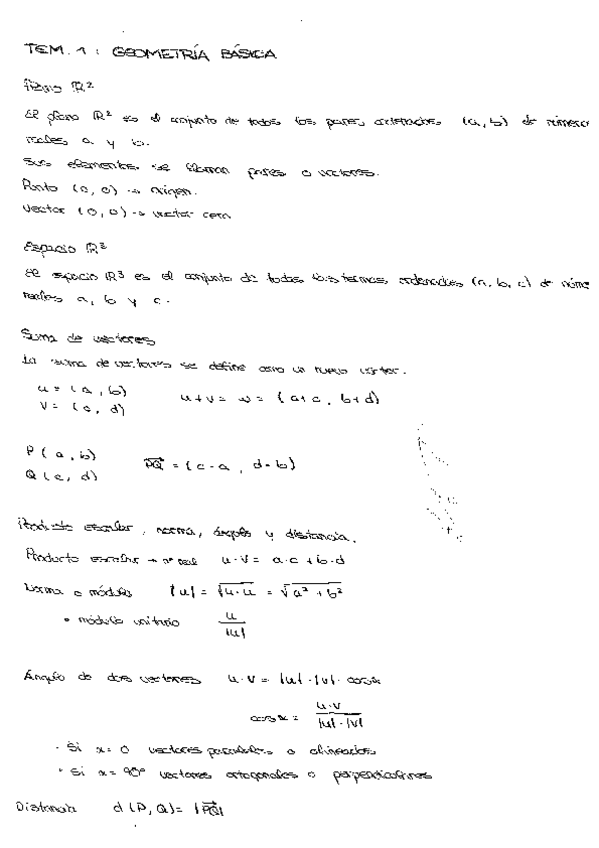 TEM. 1 : GEOMETRÍA BÁSICA
Plano ℝ²
El plano ℝ² es el conjunto de todos los pares ordenados (a, b) de números
reales a y b.
Sus elementos se llaman pares o vectores.
Punto (0, 0) → origen.
Vector (0, 0) → vector cero
Espacio ℝ³
El espacio ℝ³ es el conjunto de todas las ternas ordenadas (a, b, c) de núme
reales a, b y c.
Suma de vectores
La suma de vectores se define como un nuevo vector.
u = (a, b)
v = (c, d)
u + v = w = (a+c, b+d)
P (a, b)
Q (c, d)
PQ⃗ = (c-a, d-b)
Producto escalar, norma, ángulos y distancia.
Producto escalar → nº real u·v = a·c + b·d
Norma o módulo |u| = √u·u = √a² + b²
• módulo unitario u/|u|
Ángulo de dos vectores u·v = |u|·|v|·cosα
cosα = u·v/|u|·|v|
· Si α = 0 vectores paralelos o alineados
· Si α = 90º vectores ortogonales o perpendiculares
Distancia d(P, Q) = |PQ⃗|